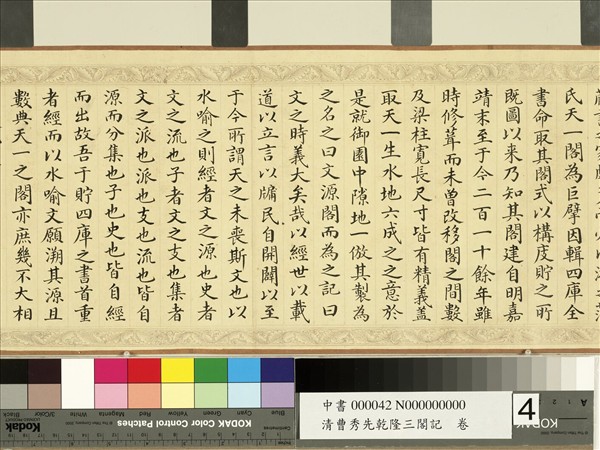 氏天一閣為巨擘因輯四庫全
書命取其閣式以構庋貯之所
既圖以来乃知其閣建自明嘉
靖末至于今二百一十餘年雖
時修葺而未曾改移閣之間數
及梁柱寬長尺寸皆有精義蓋
取天一生水地六成之之意於
是就御園中隙地一倣其製為
之名之曰文源閣而為之記曰
文之時義大矣哉以經世以載
道以立言以牖民自開闢以至
于今所謂天之未喪斯文也以
水喻之則經者文之源也史者
文之流也子者文之支也集者
文之派也派也支也流也皆自
源而分集也子也史也皆自經
而出故吾于貯四庫之書首重
者經而以水喻文願溯其源且
數典天一之閣亦庶幾不大相
中書 000042 N000000000
清曹秀先乾隆三閣記 卷
4
KODAK Color Control Patches
Kodak
Blue Cyan Green Yellow Red Magenta White 3/Color Black
A